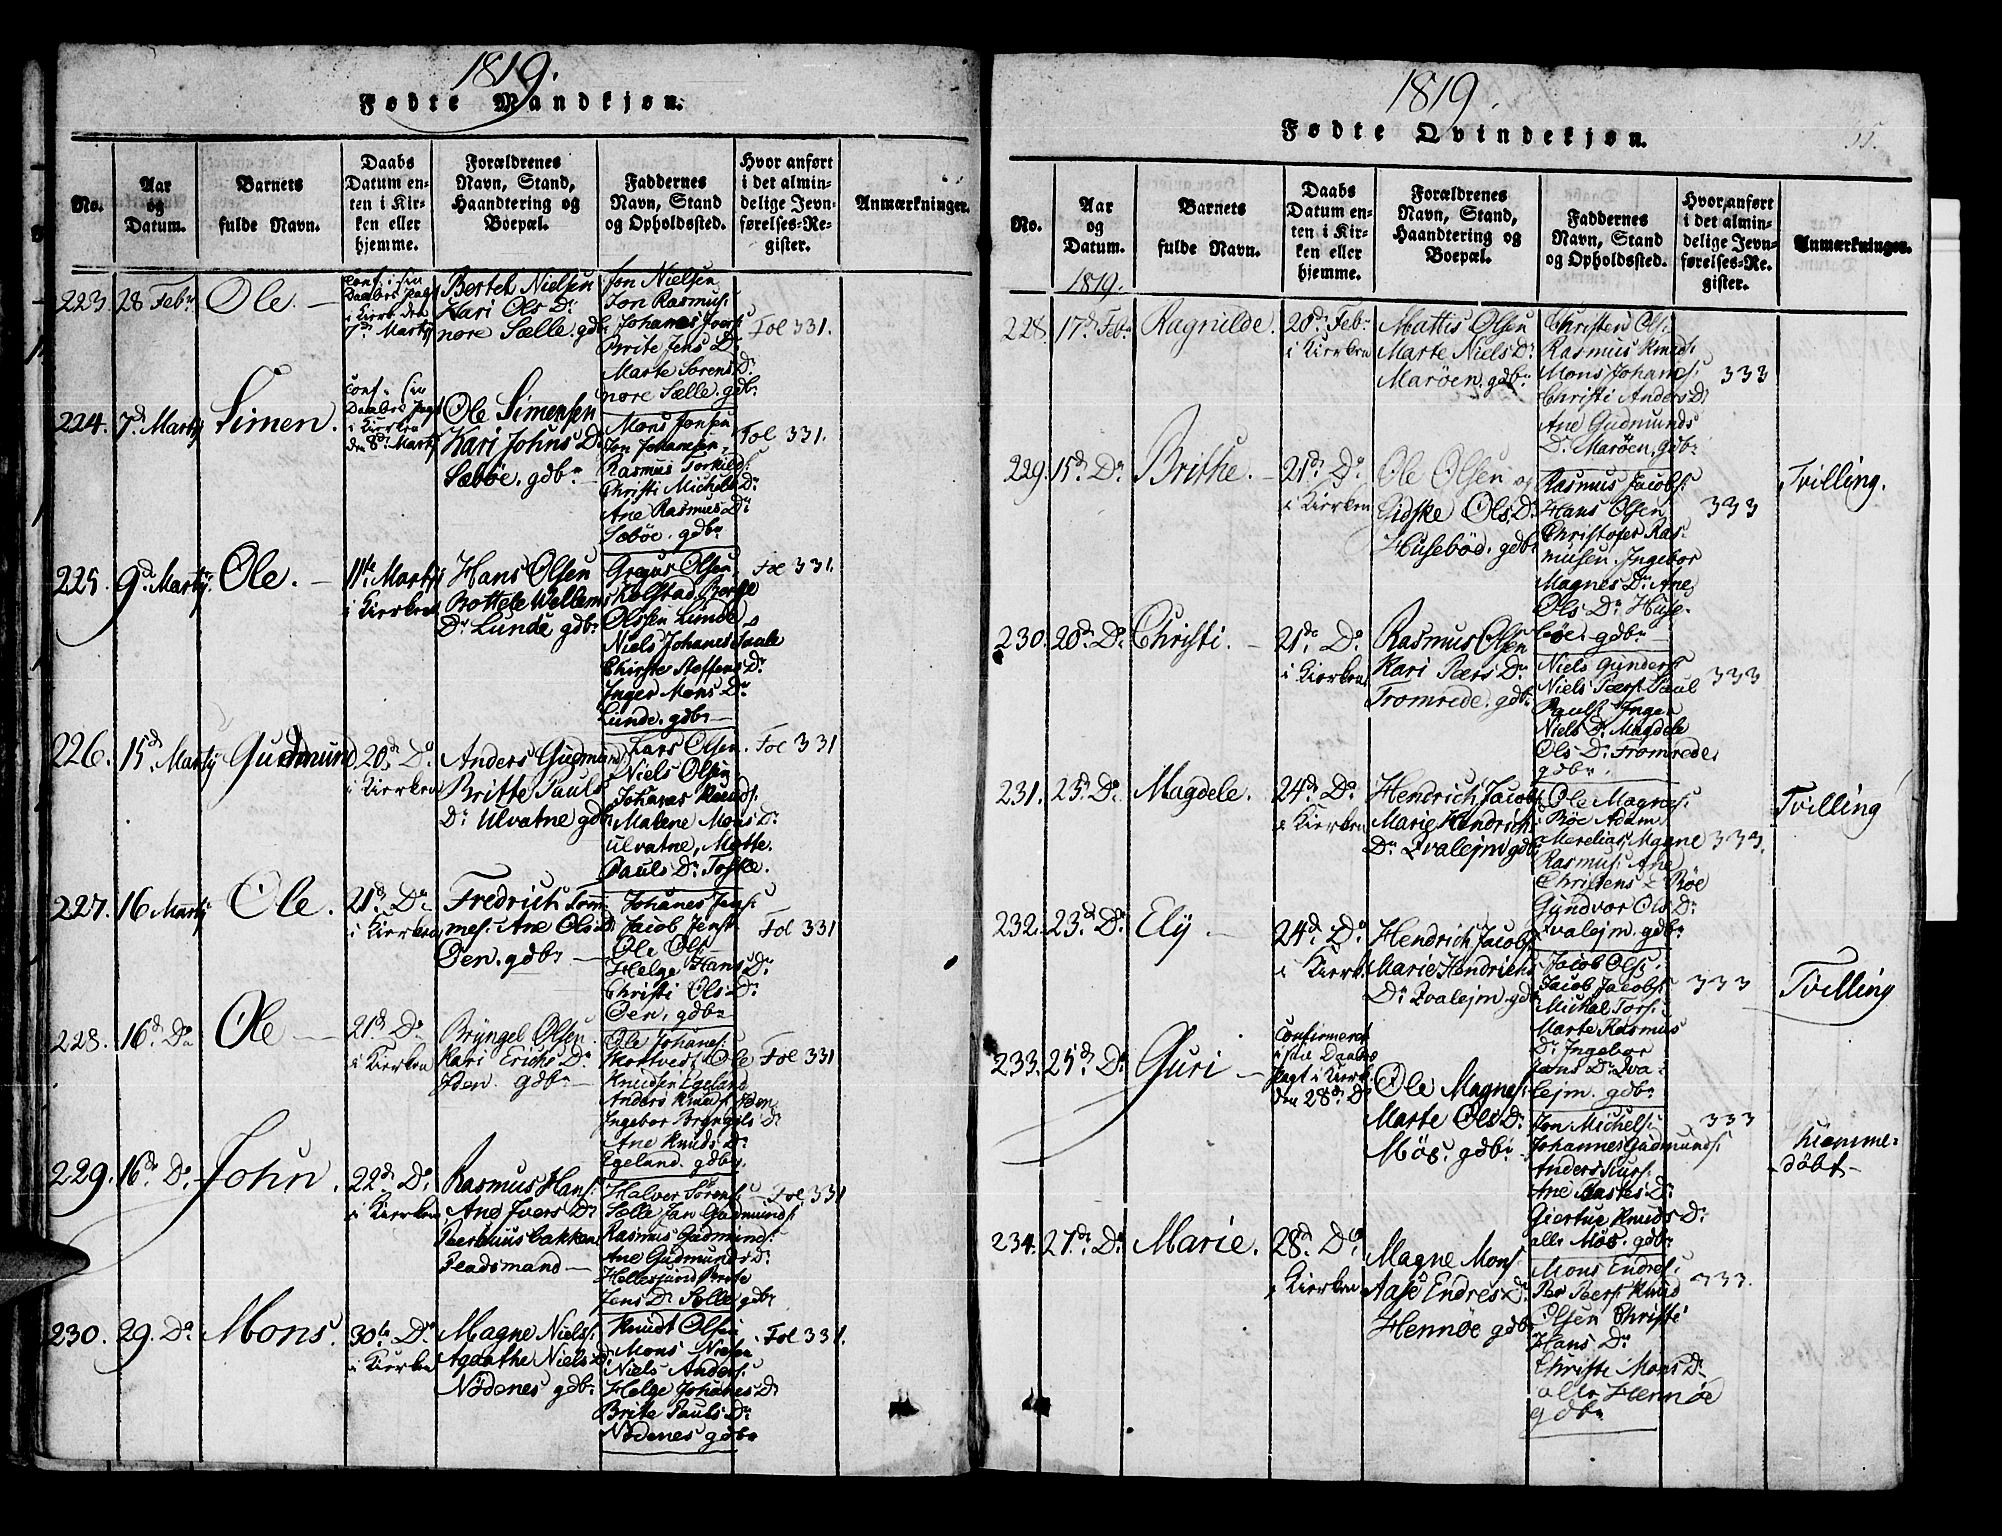 1819.
Fødte Mandkjøn.
No.
Aar
og
Datum.
Barnets
fulde Navn.
Daabs
Datum en-
ten i Kir-
ken eller
hjemme.
Forældrenes
Navn, Stand,
Haandtering og
Boepæl.
Faddernes
Navn, Stand
og Opholdssted.
Hvor anført
i det almin-
delige Jevn-
førelses-Re-
gister.
Anmærkninger.
223.
28 Febr
Ole.
Conf: i sin
Daabes Pagt
i Kierk den
7de Martij
Bertel Nielsen
Kari Ols Dr
nore Sælle. gdbr
Jon Nielsen
Jon Rasmus:
Johanes Joers:
Brite Jens Dr
Marte Sørens Dr
nore Sælle. gdbr
Fol 331.
224.
7d Martij
Simen.
Conf: i sin
Daabes Pagt
i Kierken
den 8de Martij
Ole Simensen
Kari Johns Dr
Sæbøe. gdbr
Mons Jonsen
Jon Johansen
Rasmus Torkilds:
Christi Michels Dr
Ane Rasmus Dr
Sæbøe. gdbr
Fol 331.
225.
9d Martij.
Ole.
11te Martij
i Kierken
Hans Olsen
Bottele Wellems
Dr Lunde gdbr
Gregus Olsen
Kolstad Børge
Olssen Lunde
Niels Johanes Saale
Chirste Steffens Dr
Inger Mons Dr
Lunde. gdbr
Fol 331.
226.
15d Martij
Gudmund
20de Do
i Kierken
Anders Gudmund
Britte Pauls
Dr Ulvatne gdbr
Lars Olsen.
Niels Olsen
Johanes Knuds:
Malene Mons Dr
Ulvatne, Motte
Pauls Dr Toske.
Fol 331
227.
16 Martij
Ole.
21de Do
i Kierken
Fredrich Tom-
mes: Ane Ols Dr
Øen. gdbr
Johanes Jens:
Jacob Jens:
Ole Ols:
Helge Hans Dr
Christi Ols Dr
Øen, gdbr
Fol 331
228.
16d Do
Ole
21d Do
i Kierken
Bryngel Olsen
Kari Erichs Dr
Iden. gdbr
Ole Johanes:
Mortveds: Ole
Knudsen Egeland
Anders Knuds:
Ingebor Bryngels Dr
Ane Knuds Dr
Egeland. gdbr
Fol 331
229.
16de Do
John.
22d Do
i Kierken
Rasmus Hans:
Ane Jvers Dr
Halver Sørens:
Sælle Jan Gudmunds:
Rasmus Gudmunds:
Ane Gudmunds Dr
Hellesund Brite
Jens Dr Sælle gdbr
Fol 331
230.
29. Do
Mons.
30te Do
i Kierken
Magne Niels:
Agaathe Niels Dr
Nødenes gdbr
Knudt Olsen
Mons Nielsen
Niels Anders:
Helge Johanes Dr
Brite Pauls Dr
Nødenes gdbr
Fol 331.
1819.
Fødte Qvindekjøn.
55.
No.
Aar
og
Datum.
Barnets
fulde Navn.
Daabs
Datum en-
ten i Kir-
ken eller
hjemme.
Forældrenes
Navn, Stand,
Haandtering og
Boepæl.
Faddernes
Navn, Stand
og Opholdssted.
Hvor anført
i det almin-
delige Jevn-
førelses-Re-
gister.
Anmærkninger.
1819.
228.
17d Febr
Ragnilde.
20d Febr
i Kierken
Mattis Olsen
Marte Niels Dr
Marøen. gdbr
Christen Ols:
Rasmus Knuds:
Mons Johans:
Christi Anders Dr
Ane Gudmunds
Dr Marøen. gdbr
333
229.
15d Do
Brithe.
21de Do
i Kierken
Ole Olsen og
Gidske Ols Dr
Husebød. gdbr
Rasmus Jacobs:
Hans Olsen
Christofer Ras-
musen. Ingebor
Magnes Dr Ane
Ols Dr Huse-
bøe. gdbr
333
Tvilling.
230.
20d Do
Christi.
21de Do
i Kierken
Rasmus Olsen
Kari Pærs Dr
Fromrede. gdbr
Niels Gunders:
Niels Pærs: Paul
Pauls: Inger
Niels Dr Magdele
Ols Dr Fromrede
gdbr.
333
231.
23 Do
Magdele.
24d Do
i Kierken
Hendrich Jacobs:
Marie Hendrich:
Dr Qvalejm gdbr
Ole Magnes:
Bøe Adam
Merelias: Magne
Rasmus: Ane
Christens Dr Bøe
Gundvor Ols Dr
Qvalejm. gdbr
333.
Tvilling
232.
23d Do
Ely
24d Do
i Kierk:
Hendrich Jacobs:
Marie Hendrichs
Dr Qvalejm. gdbr
Jacob Ols:
Jacob Jacobs:
Mickal Tors:
Marte Rasmus
Dr Ingebor
Jans Dr Qva-
lejm. gdbr
333
Tvilling
233.
25d Do
Guri
Confirmeret
i sin Daabs
Pagt i Kierk.
den 28de Do
Ole Magnes:
Marte Ols Dr
Møs. gdbr
Jon Michels:
Johannes Gudmunds:
Anders
Ane Dr
Giertrue Knuds Dr
alle Møs. gdbr
333
Hiemme-
døbt
234.
27de Do
Marie.
28d Do
i Kierken
Magne Mons:
Aase Endres Dr
Hennøe gdbr
Mons Endres:
Per Peers: Knud
Olsen Christi
Hans Dr
Christe Mons Dr
alle Hennøe
gdbr
333.